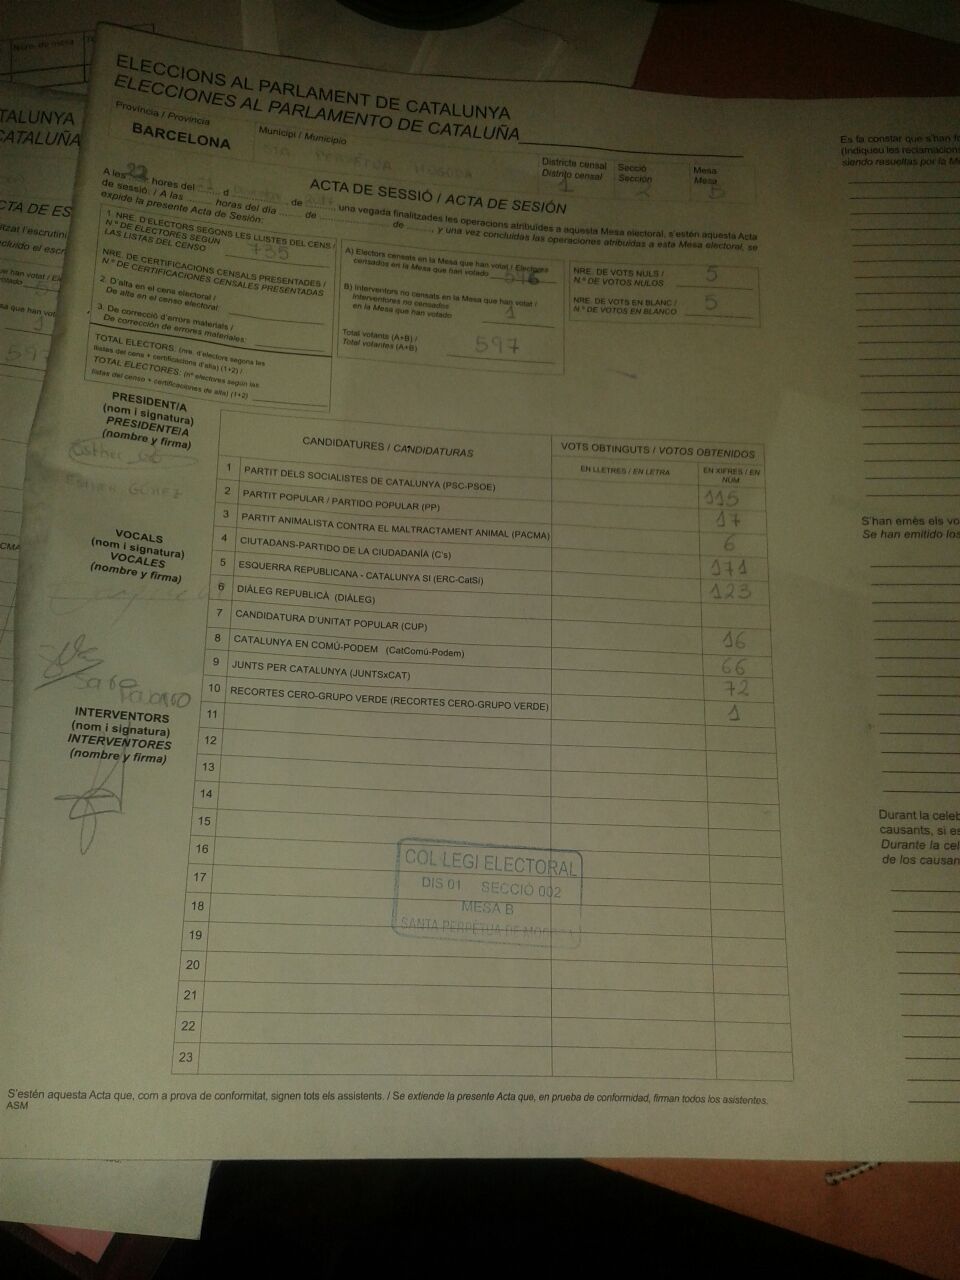 Núm. de mesa
ELECCIONS AL PARLAMENT DE CATALUNYA
ELECCIONES AL PARLAMENTO DE CATALUÑA
Província / Provincia
BARCELONA
Municipi / Municipio
STA PERPETUA MOGODA
Districte censal
Distrito censal
1
Secció
Sección
2
Mesa
Mesa
B
ACTA DE SESSIÓ / ACTA DE SESIÓN
A les 22 hores del ........ d ........, de ........, una vegada finalitzades les operacions atribuïdes a aquesta Mesa electoral, s'estén aquesta Acta
de sessió. / A las ........ horas del día ........ de ........ de ........, y una vez concluidas las operaciones atribuidas a esta Mesa electoral, se
expide la presente Acta de Sesión:
1. NRE. D'ELECTORS SEGONS LES LLISTES DEL CENS /
N.º DE ELECTORES SEGÚN
LAS LISTAS DEL CENSO 735
NRE. DE CERTIFICACIONS CENSALS PRESENTADES /
N.º DE CERTIFICACIONES CENSALES PRESENTADAS
2. D'alta en el cens electoral /
De alta en el censo electoral:
3. De correcció d'errors materials /
De corrección de errores materiales:
TOTAL ELECTORS: (nre. d'electors segons les
llistes del cens + certificacions d'alta) (1+2) /
TOTAL ELECTORES: (nº electores según las
listas del censo + certificaciones de alta) (1+2)
A) Electors censats en la Mesa que han votat / Electores
censados en la Mesa que han votado 596
B) Interventors no censats en la Mesa que han votat /
Interventores no censados
en la Mesa que han votado 1
Total votants (A+B) /
Total votantes (A+B) 597
NRE. DE VOTS NULS /
N.º DE VOTOS NULOS 5
NRE. DE VOTS EN BLANC /
N.º DE VOTOS EN BLANCO 5
PRESIDENT/A
(nom i signatura)
PRESIDENTE/A
(nombre y firma)
Esther
ESTHER GÓMEZ
VOCALS
(nom i signatura)
VOCALES
(nombre y firma)
INTERVENTORS
(nom i signatura)
INTERVENTORES
(nombre y firma)
CANDIDATURES / CANDIDATURAS
VOTS OBTINGUTS / VOTOS OBTENIDOS
EN LLETRES / EN LETRA
EN XIFRES / EN NÚM
1 PARTIT DELS SOCIALISTES DE CATALUNYA (PSC-PSOE) 115
2 PARTIT POPULAR / PARTIDO POPULAR (PP) 17
3 PARTIT ANIMALISTA CONTRA EL MALTRACTAMENT ANIMAL (PACMA) 6
4 CIUTADANS-PARTIDO DE LA CIUDADANÍA (C's) 171
5 ESQUERRA REPUBLICANA - CATALUNYA SI (ERC-CatSi) 123
6 DIÀLEG REPUBLICÀ (DIÀLEG)
7 CANDIDATURA D'UNITAT POPULAR (CUP) 16
8 CATALUNYA EN COMÚ-PODEM (CatComú-Podem) 66
9 JUNTS PER CATALUNYA (JUNTSxCAT) 72
10 RECORTES CERO-GRUPO VERDE (RECORTES CERO-GRUPO VERDE) 1
11
12
13
14
15
16
17
18
19
20
21
22
23
COL·LEGI ELECTORAL
DIS 01 SECCIÓ 002
MESA B
SANTA PERPÈTUA DE MOGODA
S'estén aquesta Acta que, com a prova de conformitat, signen tots els assistents. / Se extiende la presente Acta que, en prueba de conformidad, firman todos los asistentes.
ASM
Es fa constar que s'han
(Indiqueu les reclamacions
siendo resueltas por la
S'han emès els
Se han emitido los
Durant la
causants, si
Durante la
de los